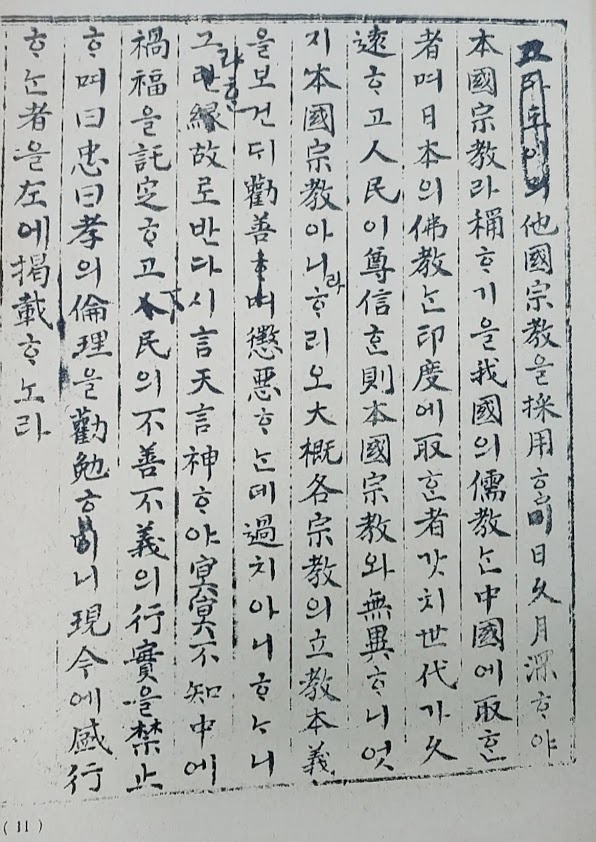 他國宗教을採用ᄒᆞ 日久月深ᄒᆞ야
本國宗教라稱ᄒᆞ기을我國의儒教ᄂᆞᆫ中國에取ᄒᆞᆫ
者며日本의佛教ᄂᆞᆫ印度에取ᄒᆞᆫ者갓치世代가久
遠ᄒᆞ고人民이尊信ᄒᆞᆫ則本國宗教와無異ᄒᆞ니엇
지本國宗教아니라ᄒᆞ리오大概各宗教의立教本義
을보건ᄃᆡ勸善ᄒᆞ며懲惡ᄒᆞᄂᆞᆫ데過치아니ᄒᆞᄂᆞ니
그 緣故로반다시言天言神ᄒᆞ야冥冥不知中에
禍福을託定ᄒᆞ고 民의不善不義의行實을禁止
ᄒᆞ며曰忠曰孝의倫理을勸勉ᄒᆞ 니現今에盛行
ᄒᆞᄂᆞᆫ者을左에揭載ᄒᆞ노라
( 11 )